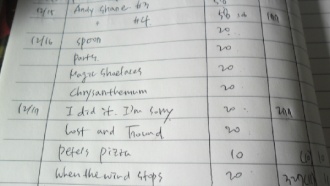 12/15 Andy Shaner #3 58
" #4 58
12/16 spoon 20
parts 20
Magic Shoelaces 20
Chrysanthemum 20
12/17 I did it. I'm sorry 20
Lost and Found 20
Pete's pizza 10
When the wind stops 20